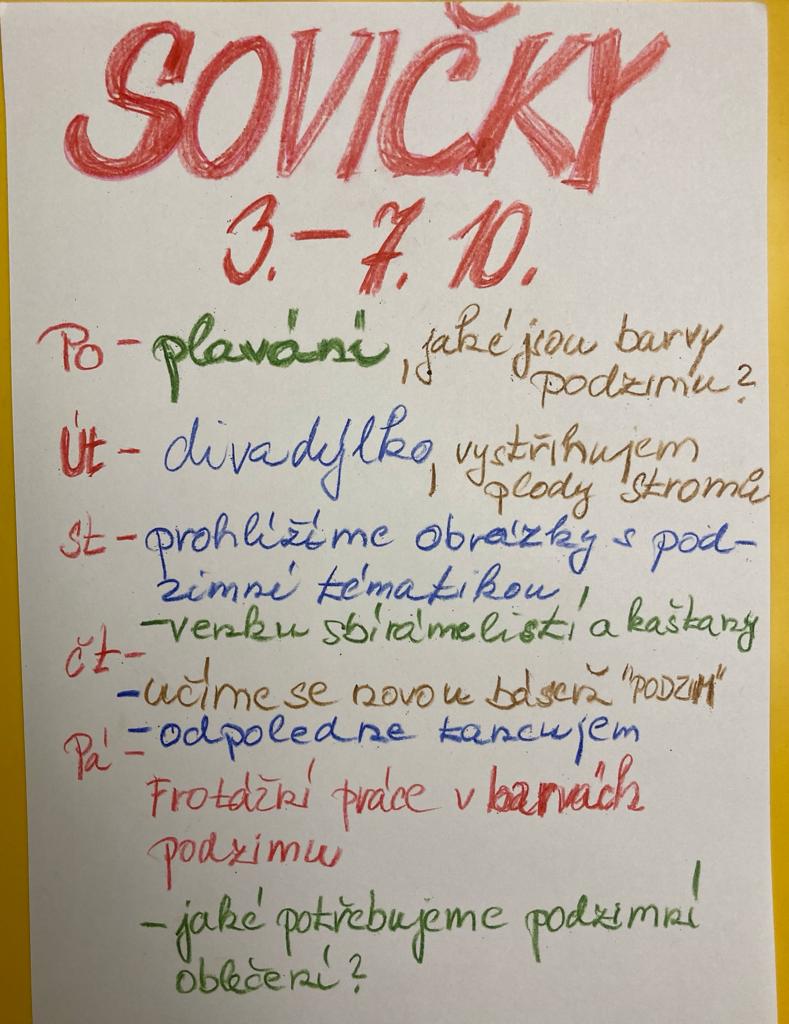 SOVIČKY
3. – 7. 10.
Po – plavání, jaké jsou barvy
podzimu?
Út – divadýlko, vystřihujem
plody stromů
st – prohlížíme obrázky s pod-
zimní tématikou
– venku sbíráme listí a kaštany
čt –
– učíme se novou báseň "PODZIM"
– odpoledne tancujem
Pá –
Frotážní práce v barvách
podzimu
– jaké potřebujeme podzimní
oblečení?